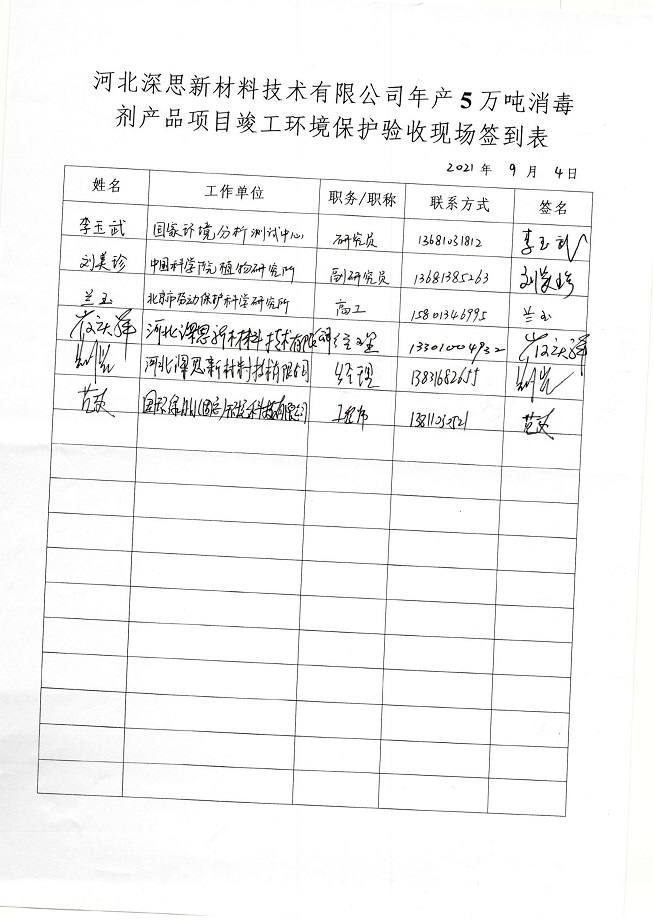 河北深思新材料技术有限公司年产 5 万吨消毒
剂产品项目竣工环境保护验收现场签到表
2021 年 9 月 4 日
姓名 工作单位 职务/职称 联系方式 签名
李玉武 国家环境分析测试中心 研究员 13681031812 李玉武
刘美珍 中国科学院植物研究所 副研究员 13681385263 刘美珍
兰玉 北京市劳动保护科学研究所 高工 15801346995 兰玉
河北深思新材料技术有限公司 13301004932
河北深思新材料技术有限公司 经理 13831682655
工程师